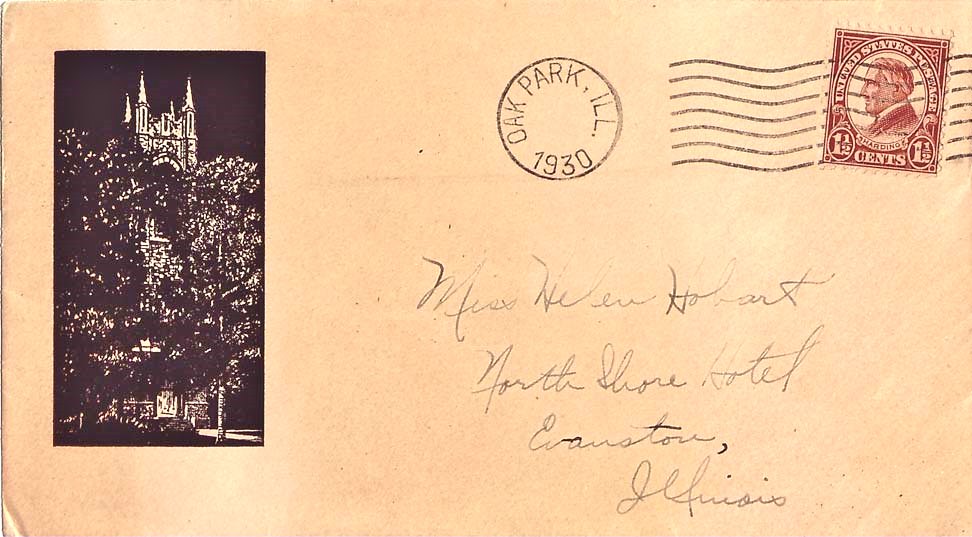 OAK PARK, ILL.
1930
UNITED STATES POSTAGE
HARDING
1½ 1½
CENTS
Miss Helen Hobart
North Shore Hotel
Evanston,
Illinois